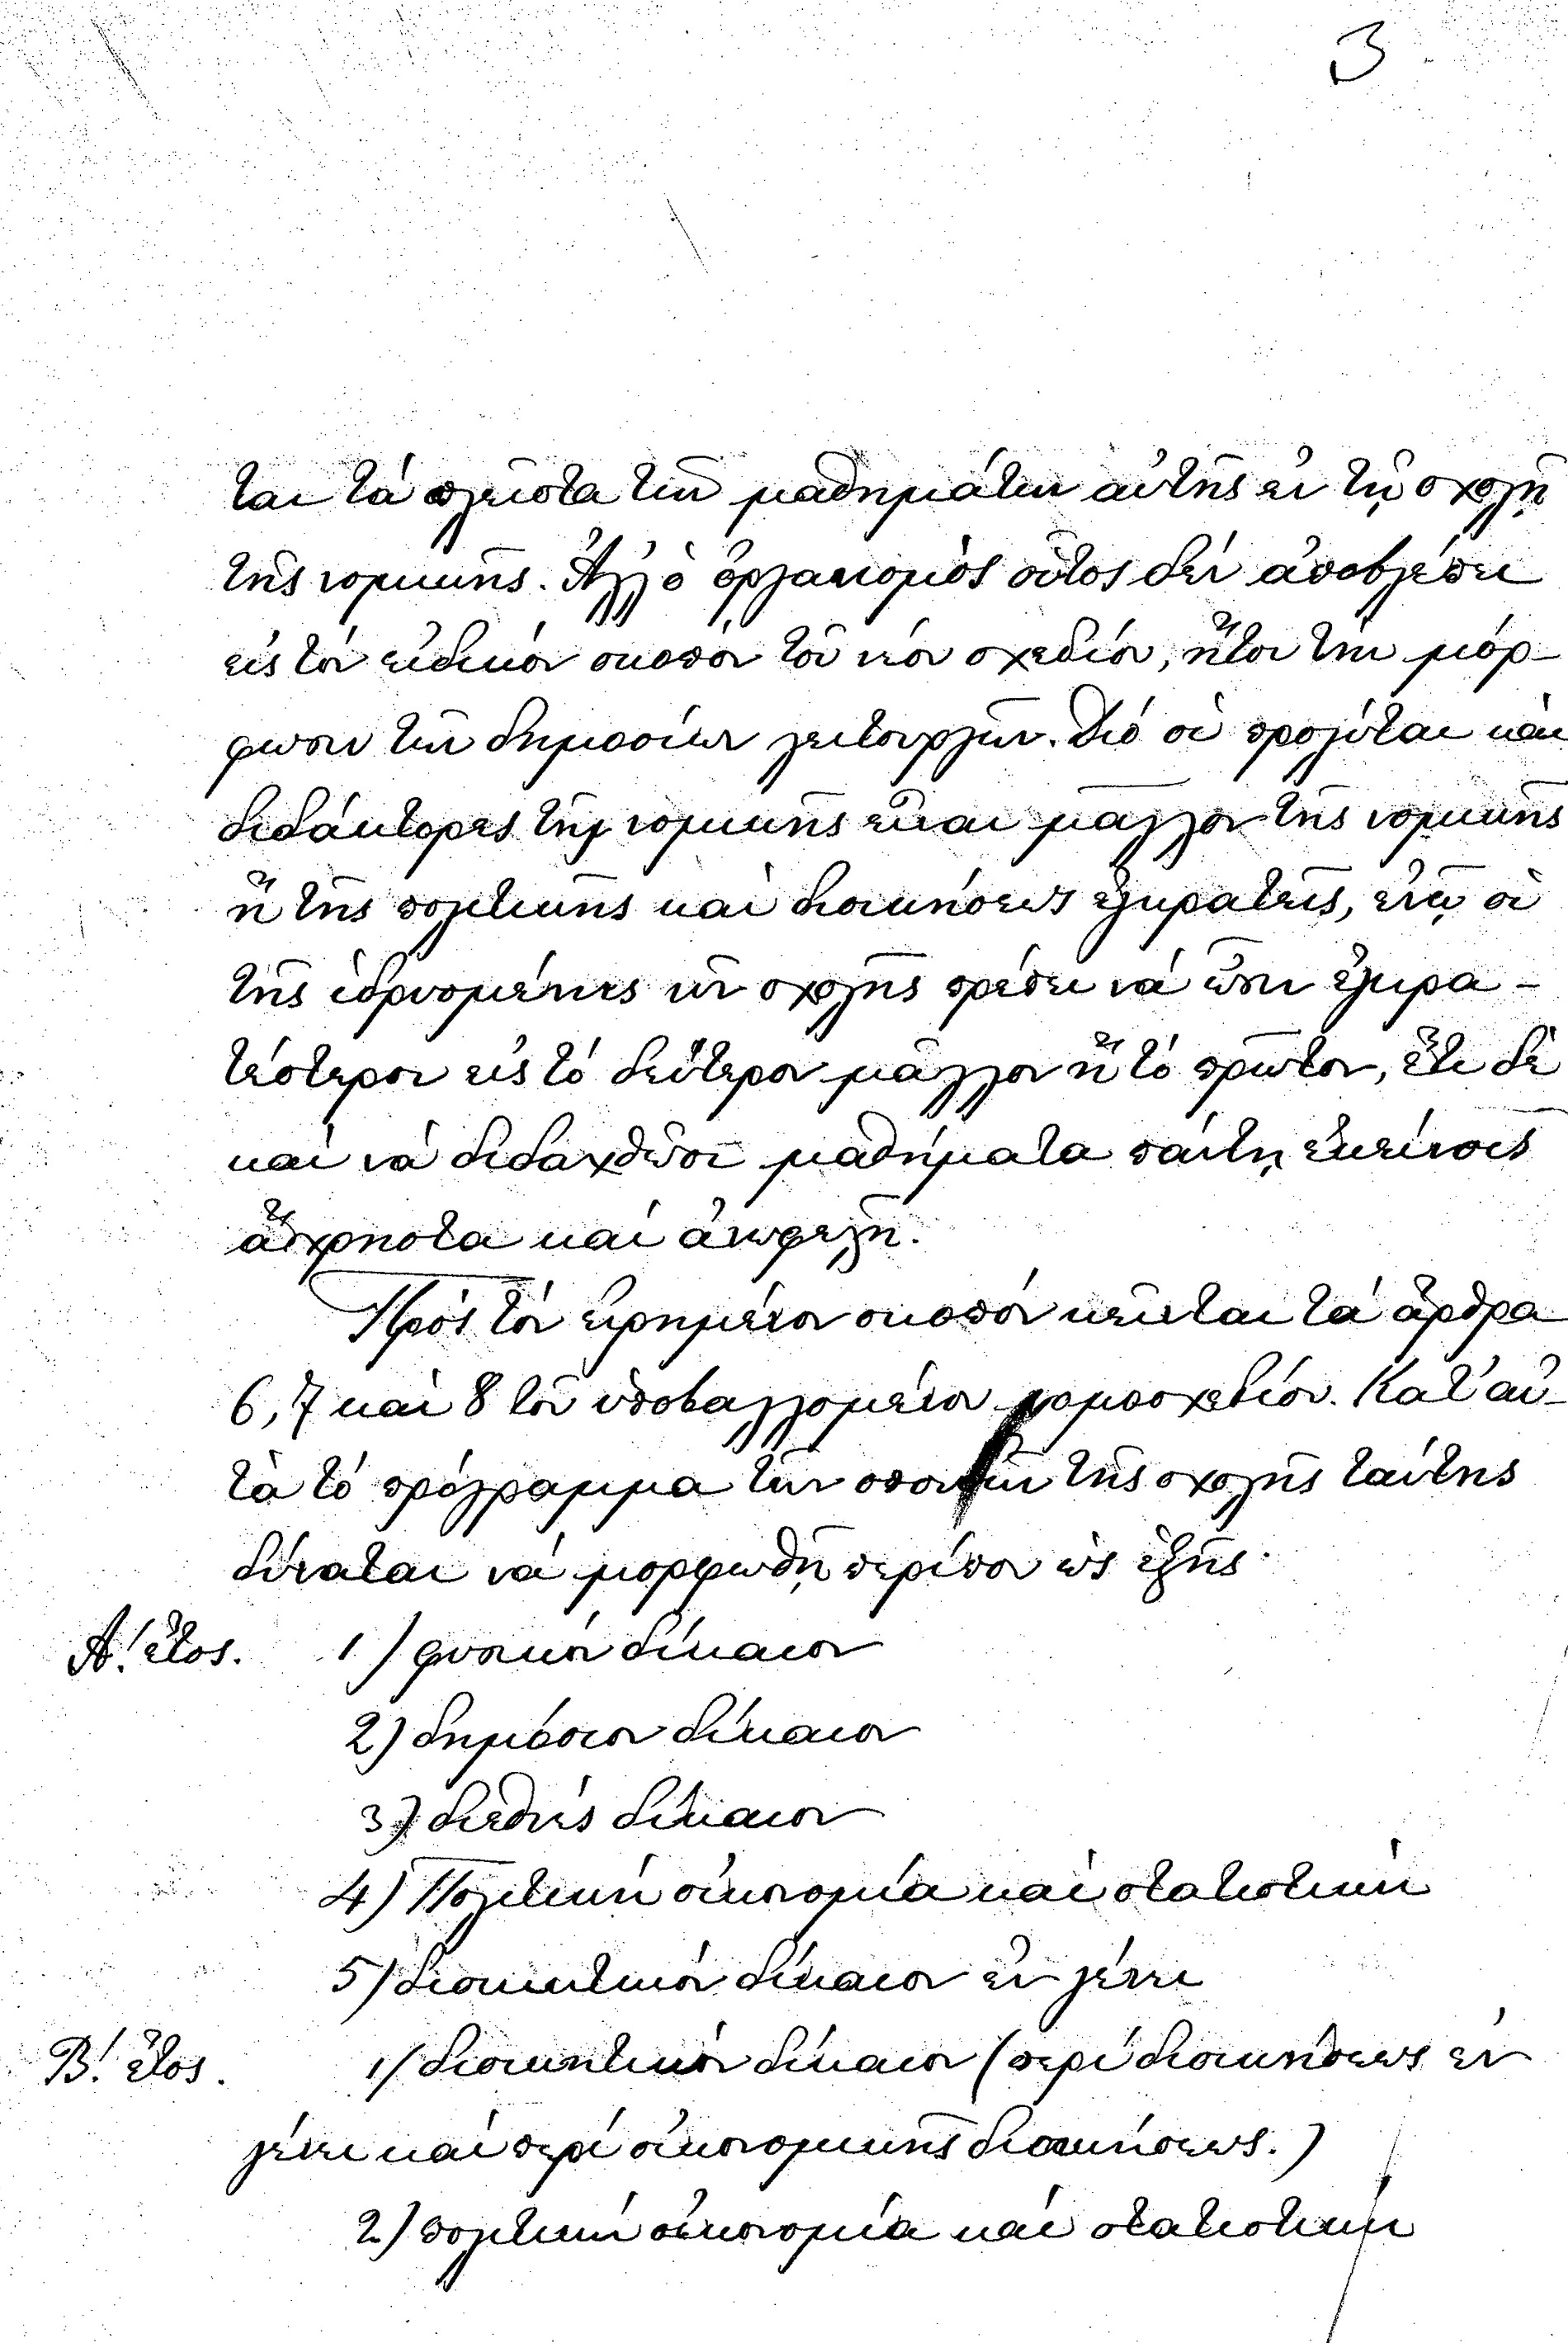 3
ται τὰ πλεῖστα τῶν μαθημάτων αὐτῆς ἐν τῇ σχολῇ
τῆς νομικῆς. Ἀλλ' ὁ ὀργανισμὸς οὗτος δὲν ἀποβλέπει
εἰς τὸν εἰδικὸν σκοπὸν τοῦ νέου σχεδίου, ἤτοι τὴν μόρ-
φωσιν τῶν δημοσίων λειτουργῶν. Διὸ οἱ προλύται καὶ
διδάκτορες τῆς νομικῆς εἶναι μᾶλλον τῆς νομικῆς
ἢ τῆς πολιτικῆς καὶ διοικήσεως ἐγκρατεῖς, ἐνῷ οἱ
τῆς ἱδρυομένης νῦν σχολῆς πρέπει νὰ ὦσιν ἐγκρα-
τέστεροι εἰς τὸ δεύτερον μᾶλλον ἢ τὸ πρῶτον, ἔτι δὲ
καὶ νὰ διδαχθῶσι μαθήματα πάντῃ ἐκείνοις
ἄχρηστα καὶ ἀνωφελῆ.
Πρὸς τὸν εἰρημένον σκοπὸν κεῖνται τὰ ἄρθρα
6, 7 καὶ 8 τοῦ ὑποβαλλομένου νομοσχεδίου. Κατ' αὐ-
τὰ τὸ πρόγραμμα τῶν σπουδῶν τῆς σχολῆς ταύτης
δύναται νὰ μορφωθῇ περίπου ὡς ἑξῆς·
Α! ἔτος. 1) φυσικὸν δίκαιον
2) δημόσιον δίκαιον
3) διεθνὲς δίκαιον
4) Πολιτικὴ οἰκονομία καὶ στατιστικὴ
5) διοικητικὸν δίκαιον ἐν γένει
Β! ἔτος. 1) διοικητικὸν δίκαιον (περὶ διοικήσεως ἐν
γένει καὶ περὶ οἰκονομικῆς διοικήσεως.)
2) πολιτικὴ οἰκονομία καὶ στατιστικὴ